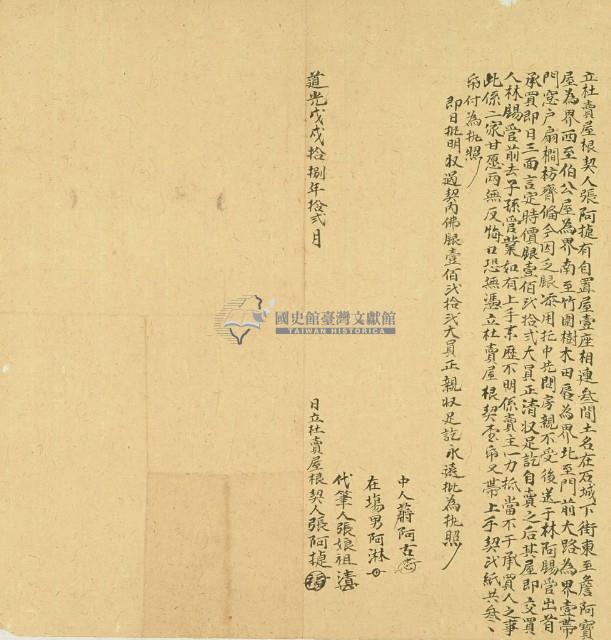 立杜賣屋根契人張阿捷有自置屋壹座相連叁間土名在石城下街東至詹阿寶
屋為界西至伯公屋為界南至竹圍樹木田唇為界北至門前大路為界壹帶
門窓户扇桷枋齊備今因乏銀添用托中先問房親不受後送于林阿賜出首
承買即日三面言定時價銀壹佰弍拾弍大員正清收足訖自賣之后其屋即交買
人林賜官前去子孫管業如有上手來歷不明係賣主一力抵當不干承買人之事
此係二家甘愿兩無反悔口恐無憑立杜賣屋根契壹帋又帶上手契弍紙共叁
帋付為批照
即日批明收過契内佛銀壹佰弍拾弍大員正親收足訖永遠批為批照
中人蔣阿古
在塲男阿淋
代筆人張娘祖
道光戊戌拾捌年拾弍月
日立杜賣屋根契人張阿捷
國史館臺灣文獻館
TAIWAN HISTORICA